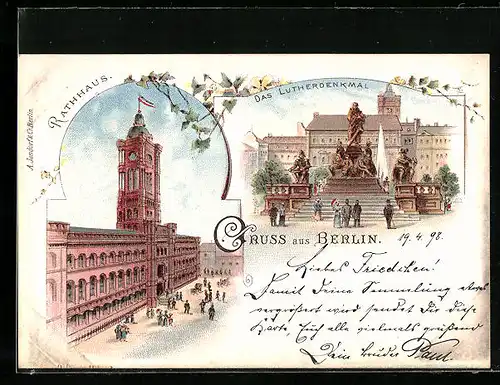 RATHHAUS.
DAS LUTHERDENKMAL
GRUSS AUS BERLIN. 19.4.98.
Liebes Friedchen!
Damit Deine Sammlung
vergrößert wird sendet Dir diese
Karte, Euch alle vielmals grüßend
Dein Bruder Paul.